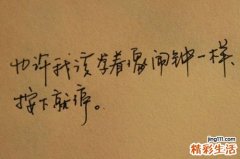 也许我该学着像闹钟一样,
按下就停。
精彩生活